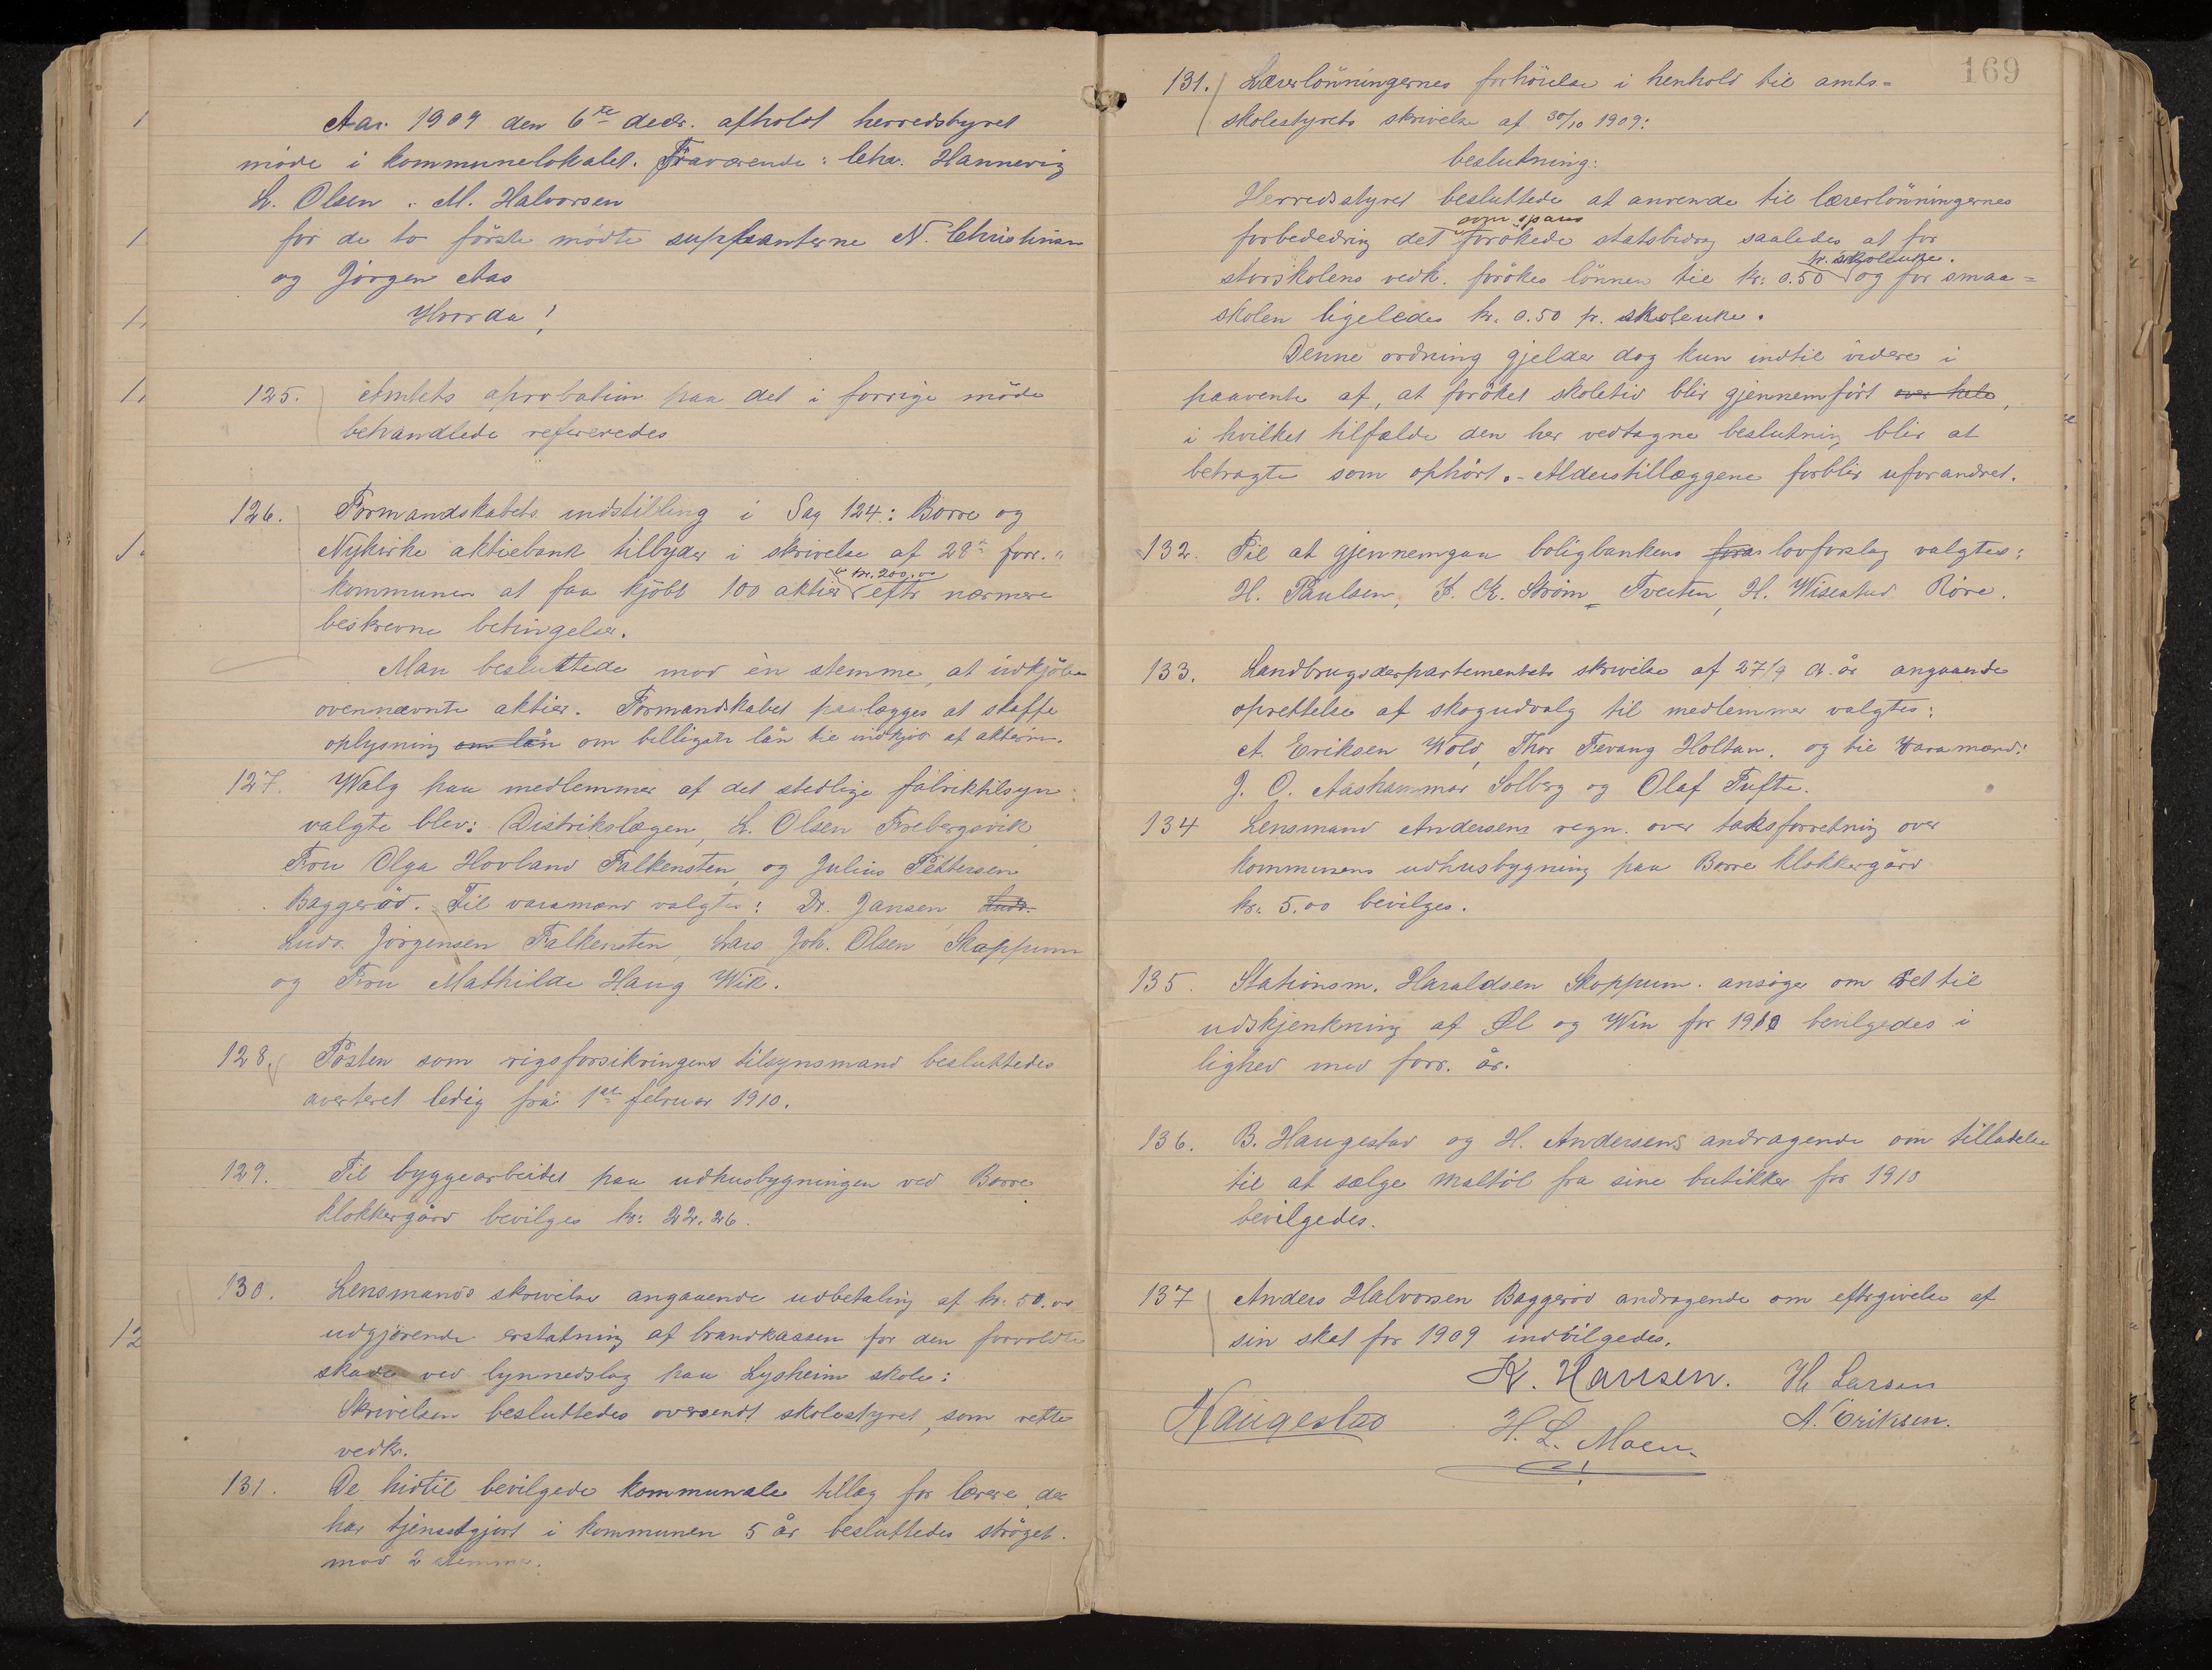 Aar 1909 den 6te decbr. afholdt herredstyret
møde i kommunelokalet. Fraværende: Chr. Hannevig
L. Olsen . M. Halvorsen
for de to første mødte suppleanterne N. Christensen
og Jörgen Aas
Hvorda!
125. Amtets aprobation paa det i forrige møde
behandlede refereredes
126. Formandskabets indstilling i Sag 124: Borre og
Nykirke aktiebank tilbyder i skrivelse af 28de forr.
a kr. 200.00
kommunen at faa kjöbt 100 aktier efter nærmere
beskrevne betingelser.
Man besluttede mod èn stemme, at indkjöbe
ovennævnte aktier. Formandskabet paalægges at skaffe
oplysning om lån om billigste lån til indkjöb af aktierne.
127. Walg paa medlemmer af det stedlige fabriktilsyn
valgte blev: Distrikslægen, L. Olsen Frebergsvik,
Fru Olga Hovland Falkensten, og Julius Pettersen
Baggeröd. Til varamænd valgtes: Dr. Jansen, Ludv.
Ludv. Jörgensen Falkensten, Lars Joh. Olsen Skoppum
og Fru Mathilde Haug Wik.
128. Posten som rigsforsikringens tilsynsmand besluttedes
averteret ledig fra 1ste februar 1910.
129. Til byggearbeidet paa udhusbygningen ved Borre
klokkergård bevilges kr: 22.26.
130. Lensmands skrivelse angaaende udbetaling af kr. 50.00
udgjörende erstatning af brandkassen for den forvoldte
skade ved lynnedslag paa Lysheim skole:
Skrivelsen besluttedes oversendt skolestyret, som rette
vedk.
131. De hidtil bevilgede kommunale tillæg for lærere der
har tjenestgjort i kommunen 5 år besluttedes ströget.
mod 2 stemmer.
169
131. Lærerlönningernes forhöielse i henhold til amts=
skolestyrets skrivelse af 30/10 1909:
beslutning:
Herredsstyret besluttede at anvende til lærerlönningernes
som spares
forbedring det forökede statsbidrag saaledes at for
pr. skoleuke.
storskolens vedk. forökes lönnen til kr: 0.50 og for smaa=
skolen ligeledes kr. 0.50 pr. skoleuke.
Denne ordning gjelder dog kun indtil videre i
paavente af, at forøket skoletid blir gjennemfört over hele,
i hvilket tilfælde den her vedtagne beslutning blir at
betragte som ophört. - Alderstillæggene forblir uforandret.
132. Til at gjennemgaa boligbankens lovforslag valgtes:
H. Paulsen, K. Ström, Tveiten, H. Wisestad Röre.
133. Landbrugsdepartementets skrivelse af 27/9 d. år angaaende
oprettelse af skogudvalg til medlemmer valgtes:
A. Eriksen Wold, Thor Fevang Holtan. og til varamænd:
J. O. Aashammar Solberg og Olaf Tufte.
134 Lensmand Andersens regn. over taksforretning over
kommunens udhusbygning paa Borre klokkergård
kr. 5.00 bevilges.
135. Stationsm. Haraldsen Skoppum. ansöger om ret til
udskjenkning af Øl og Win for 1910 bevilgedes i
lighed med forr. år.
136. B. Haugestad og H. Andersens andragende om tilladelse
til at sælge maltöl fra sine butikker for 1910
bevilgedes.
137 Anders Halvorsen Baggeröd andragende om eftergivelse af
sin skat for 1909 indvilgedes.
K. Hansen. H. Larsen
Haugestad H. L. Moen A. Eriksen.